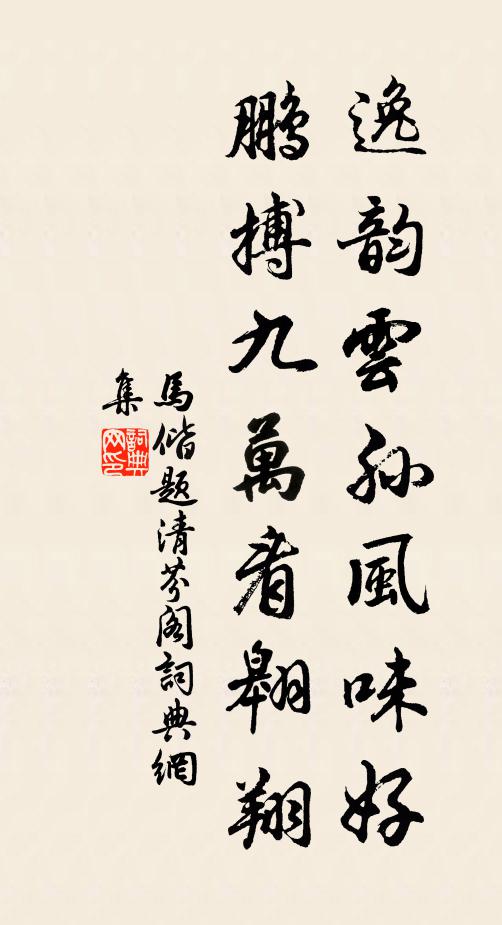 逸韵雲孙風味好
鵬搏九萬看翱翔
馬偕题清芬阁詞典網
集
詞典网印